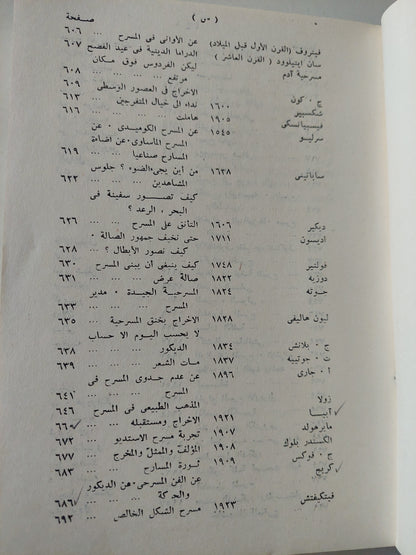 ( ٥ )
صفحة
فيتروف (القرن الأول قبل الميلاد) عن الأوانى فى المسرح ... ٦٠٦
سان ايتيلوود ( القرن العاشر ) الدراما الدينية فى عيد الفصح ٦٠٧
مسرحية آدم ليكن الفردوس فوق مكان
مرتفع ... ... ... ٦٠٨
الاخراج فى العصور الوسطى ٦٠٩
ج . كون ١٦٠٠ نداء الى خيال المتفرجين ٦١٣
شكسبير ١٩٠٥ هاملت ... ... ... ٦١٦
فيسبيانسكى
سرليو ١٥٤٥ عن المسرح الكوميدى . عن
المسرح المأساوى . عن اضاءة
المسارح صناعيا ... ٦١٩
ساباتينى ١٦٣٨ من أين يجىء الضوء ؟ جلوس
المشاهدين ... ... ٦٢٢
كيف تصور سفينة فى
البحر . الرعد ؟
ديكير ١٦٠٦ التأنق على المسرح ... ٦٢٦
اديسون ١٧١١ حتى نخيف جمهور الصالة .
كيف نصور الأبطال ؟ ... ٦٢٨
فولتير ١٧٤٨ كيف ينبغى أن يبنى المسرح ٦٣٠
دوزيه ١٨٢٢ صالة عرض ... ... ٦٣١
جوته ١٨٢٤ المسرحية الجيدة . مدير
المسرح ... ... ... ٦٣٣
ليون هاليفى ١٨٢٨ الاخراج يخنق المسرحية ... ٦٣٥
لا يحسب اليوم الا حساب
ج . بلانش الديكور ... ... ... ٦٣٨
ت . جوتييه ١٨٣٧ مات الشعر ... ... ٦٣٩
أ . جارى ١٨٩٦ عن عدم جدوى المسرح فى
المسرح ... ... ... ٦٤١
زولا المذهب الطبيعى فى المسرح ٦٤٦
أبيا ١٩٢١ الاخراج ومستقبله ... ٦٦٠
مايرهولد ١٩٠٧ تجربة مسرح الاستديو ... ٦٧٢
الكسندر بلوك ١٩٠٨ المؤلف والممثل والمخرج ... ٦٧٧
ج . فوكس ١٩٠٩ ثورة المسارح ... ... ٦٨٣
كريج عن الفن المسرحى . عن الديكور
والحركة ... ... ... ٦٨٦
فيتكيفتش ١٩٢٣ مسرح الشكل الخالص ... ٦٩٢